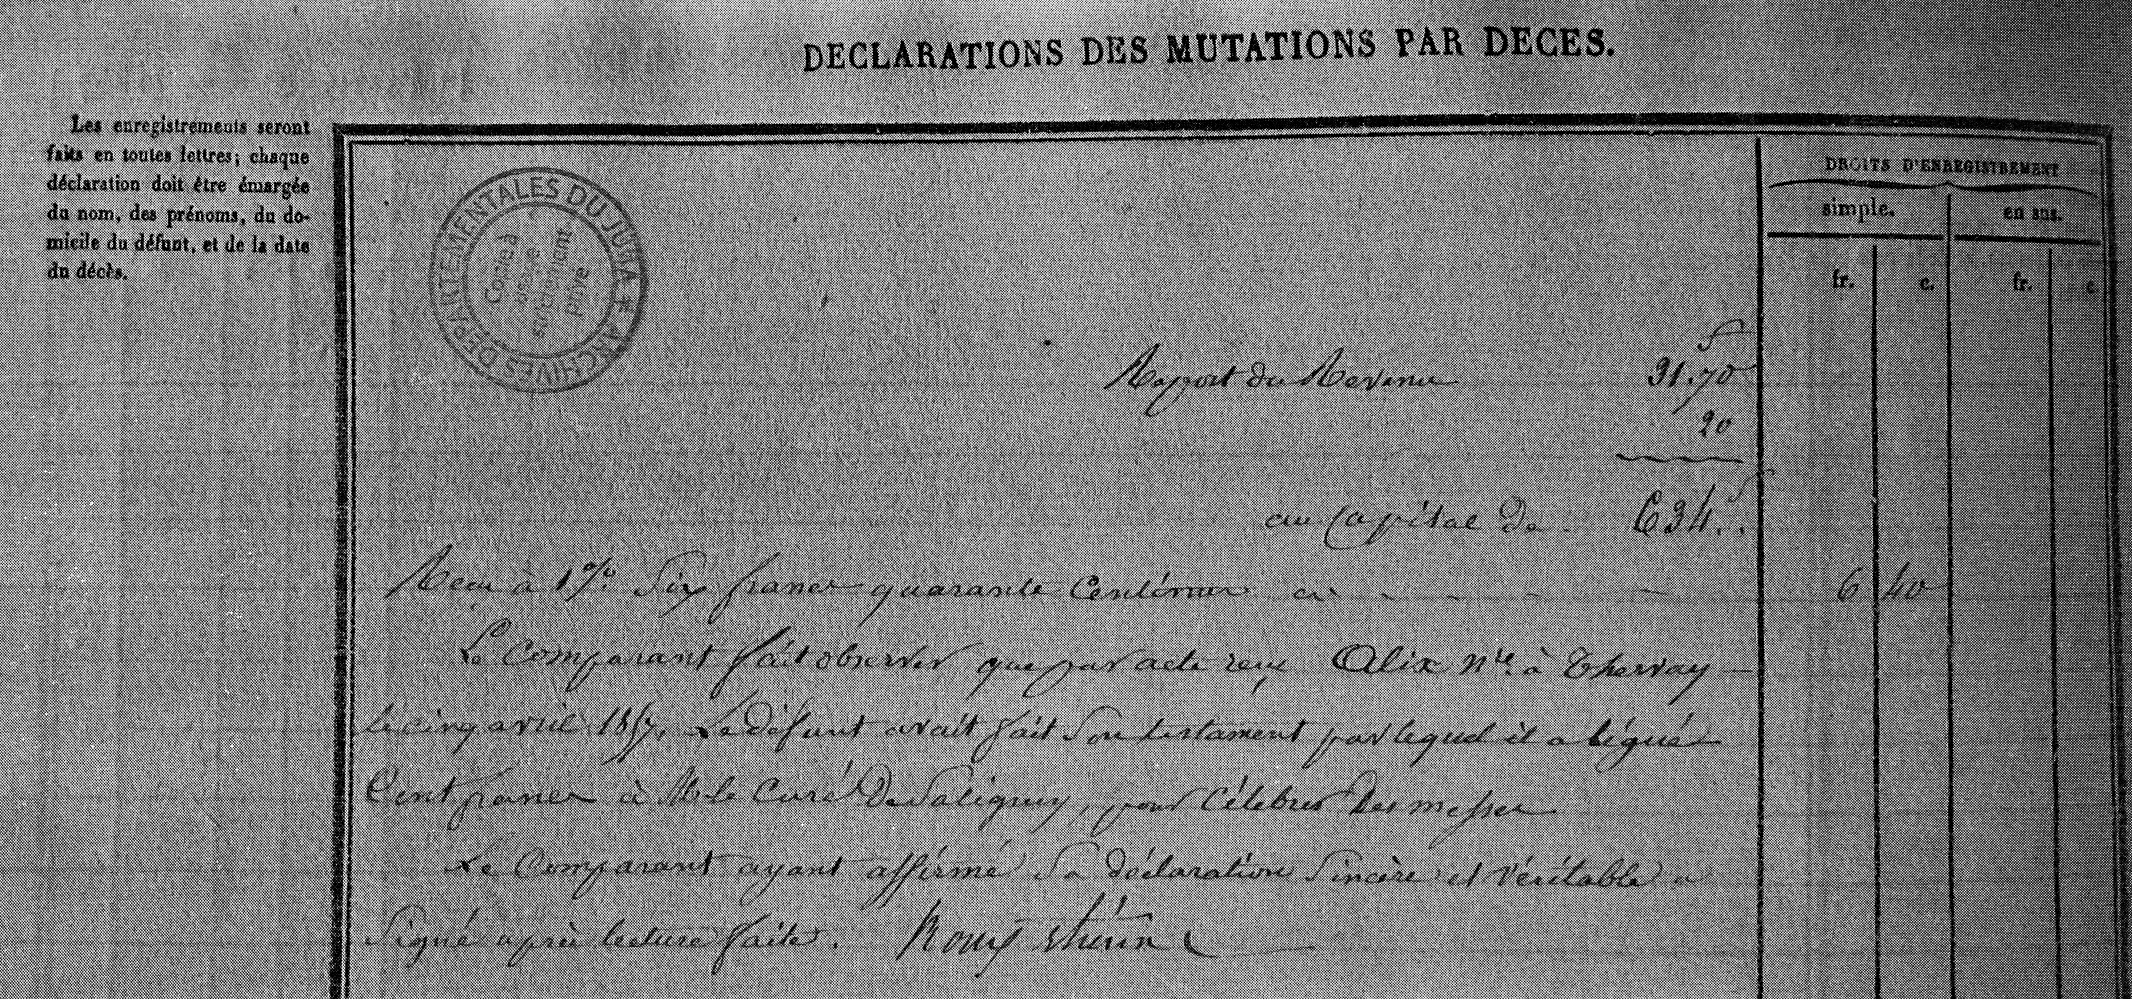 DECLARATIONS DES MUTATIONS PAR DECES.
Les enregistrements seront
faits en toutes lettres; chaque
déclaration doit être émargée
du nom, des prénoms, du do-
micile du défunt, et de la date
du décès.
ARCHIVES DEPARTEMENTALES DU JURA *
Copie à
usage
exclusivement
privé
DROITS D'ENREGISTREMENT
simple.
en sus.
fr. c. fr. c.
Report du Revenu 31.70
20
au Capital de 634..
Reçu à 1% Six francs quarante Centimes ci 6 40
Le Comparant fait observer que par acte reçu Alix nre à Thervay
le cinq avril 1857, Le défunt avait fait Son testament par lequel il a légué
Cent francs à Mr le Curé De Saligney, pour Célébrer Des messes
Le Comparant ayant affirmé Sa déclaration Sincère et Véritable a
Signé après lecture faite.